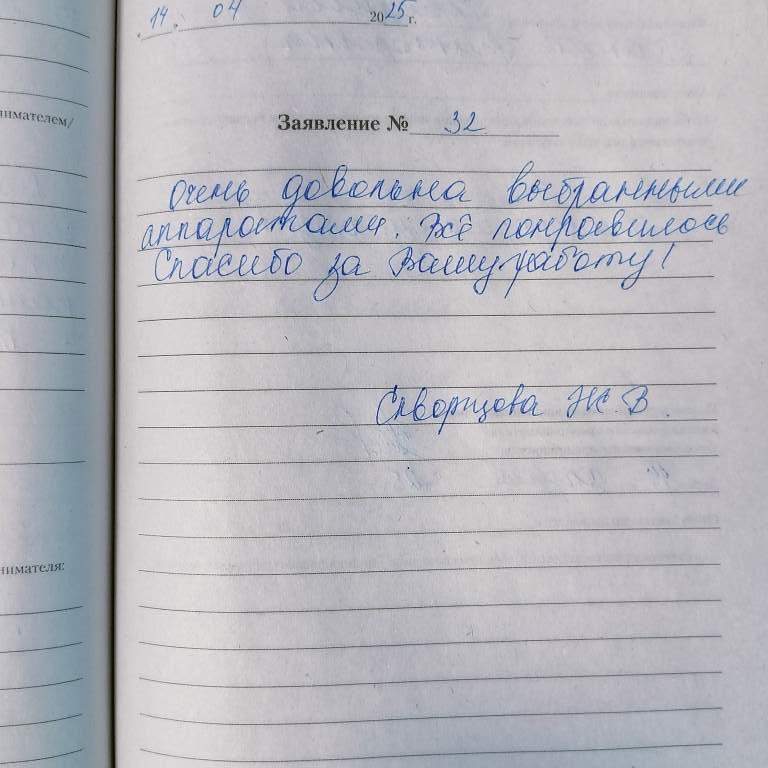 „ 14 „ 04 2025 г.
нимателем/
Заявление № 32
Очень довольна выбранными
аппаратами. Всё понравилось
Спасибо за Вашу работу!
Скворцова Ж. В.
нимателя: